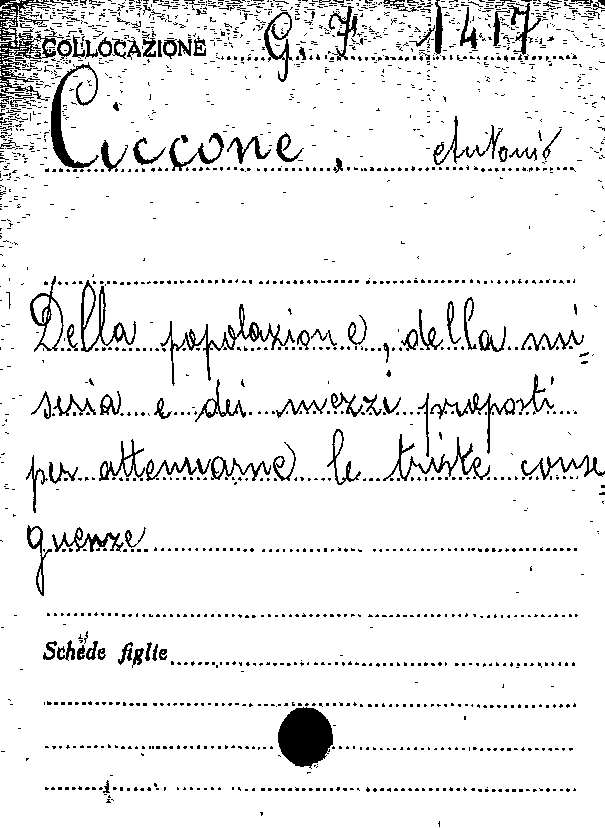 COLLOCAZIONE G. F. 1417.
Ciccone, Antonio
Della popolazione, della mi=
seria e dei mezzi proposti
per attenuarne le triste conse=
guenze
Schede figlie